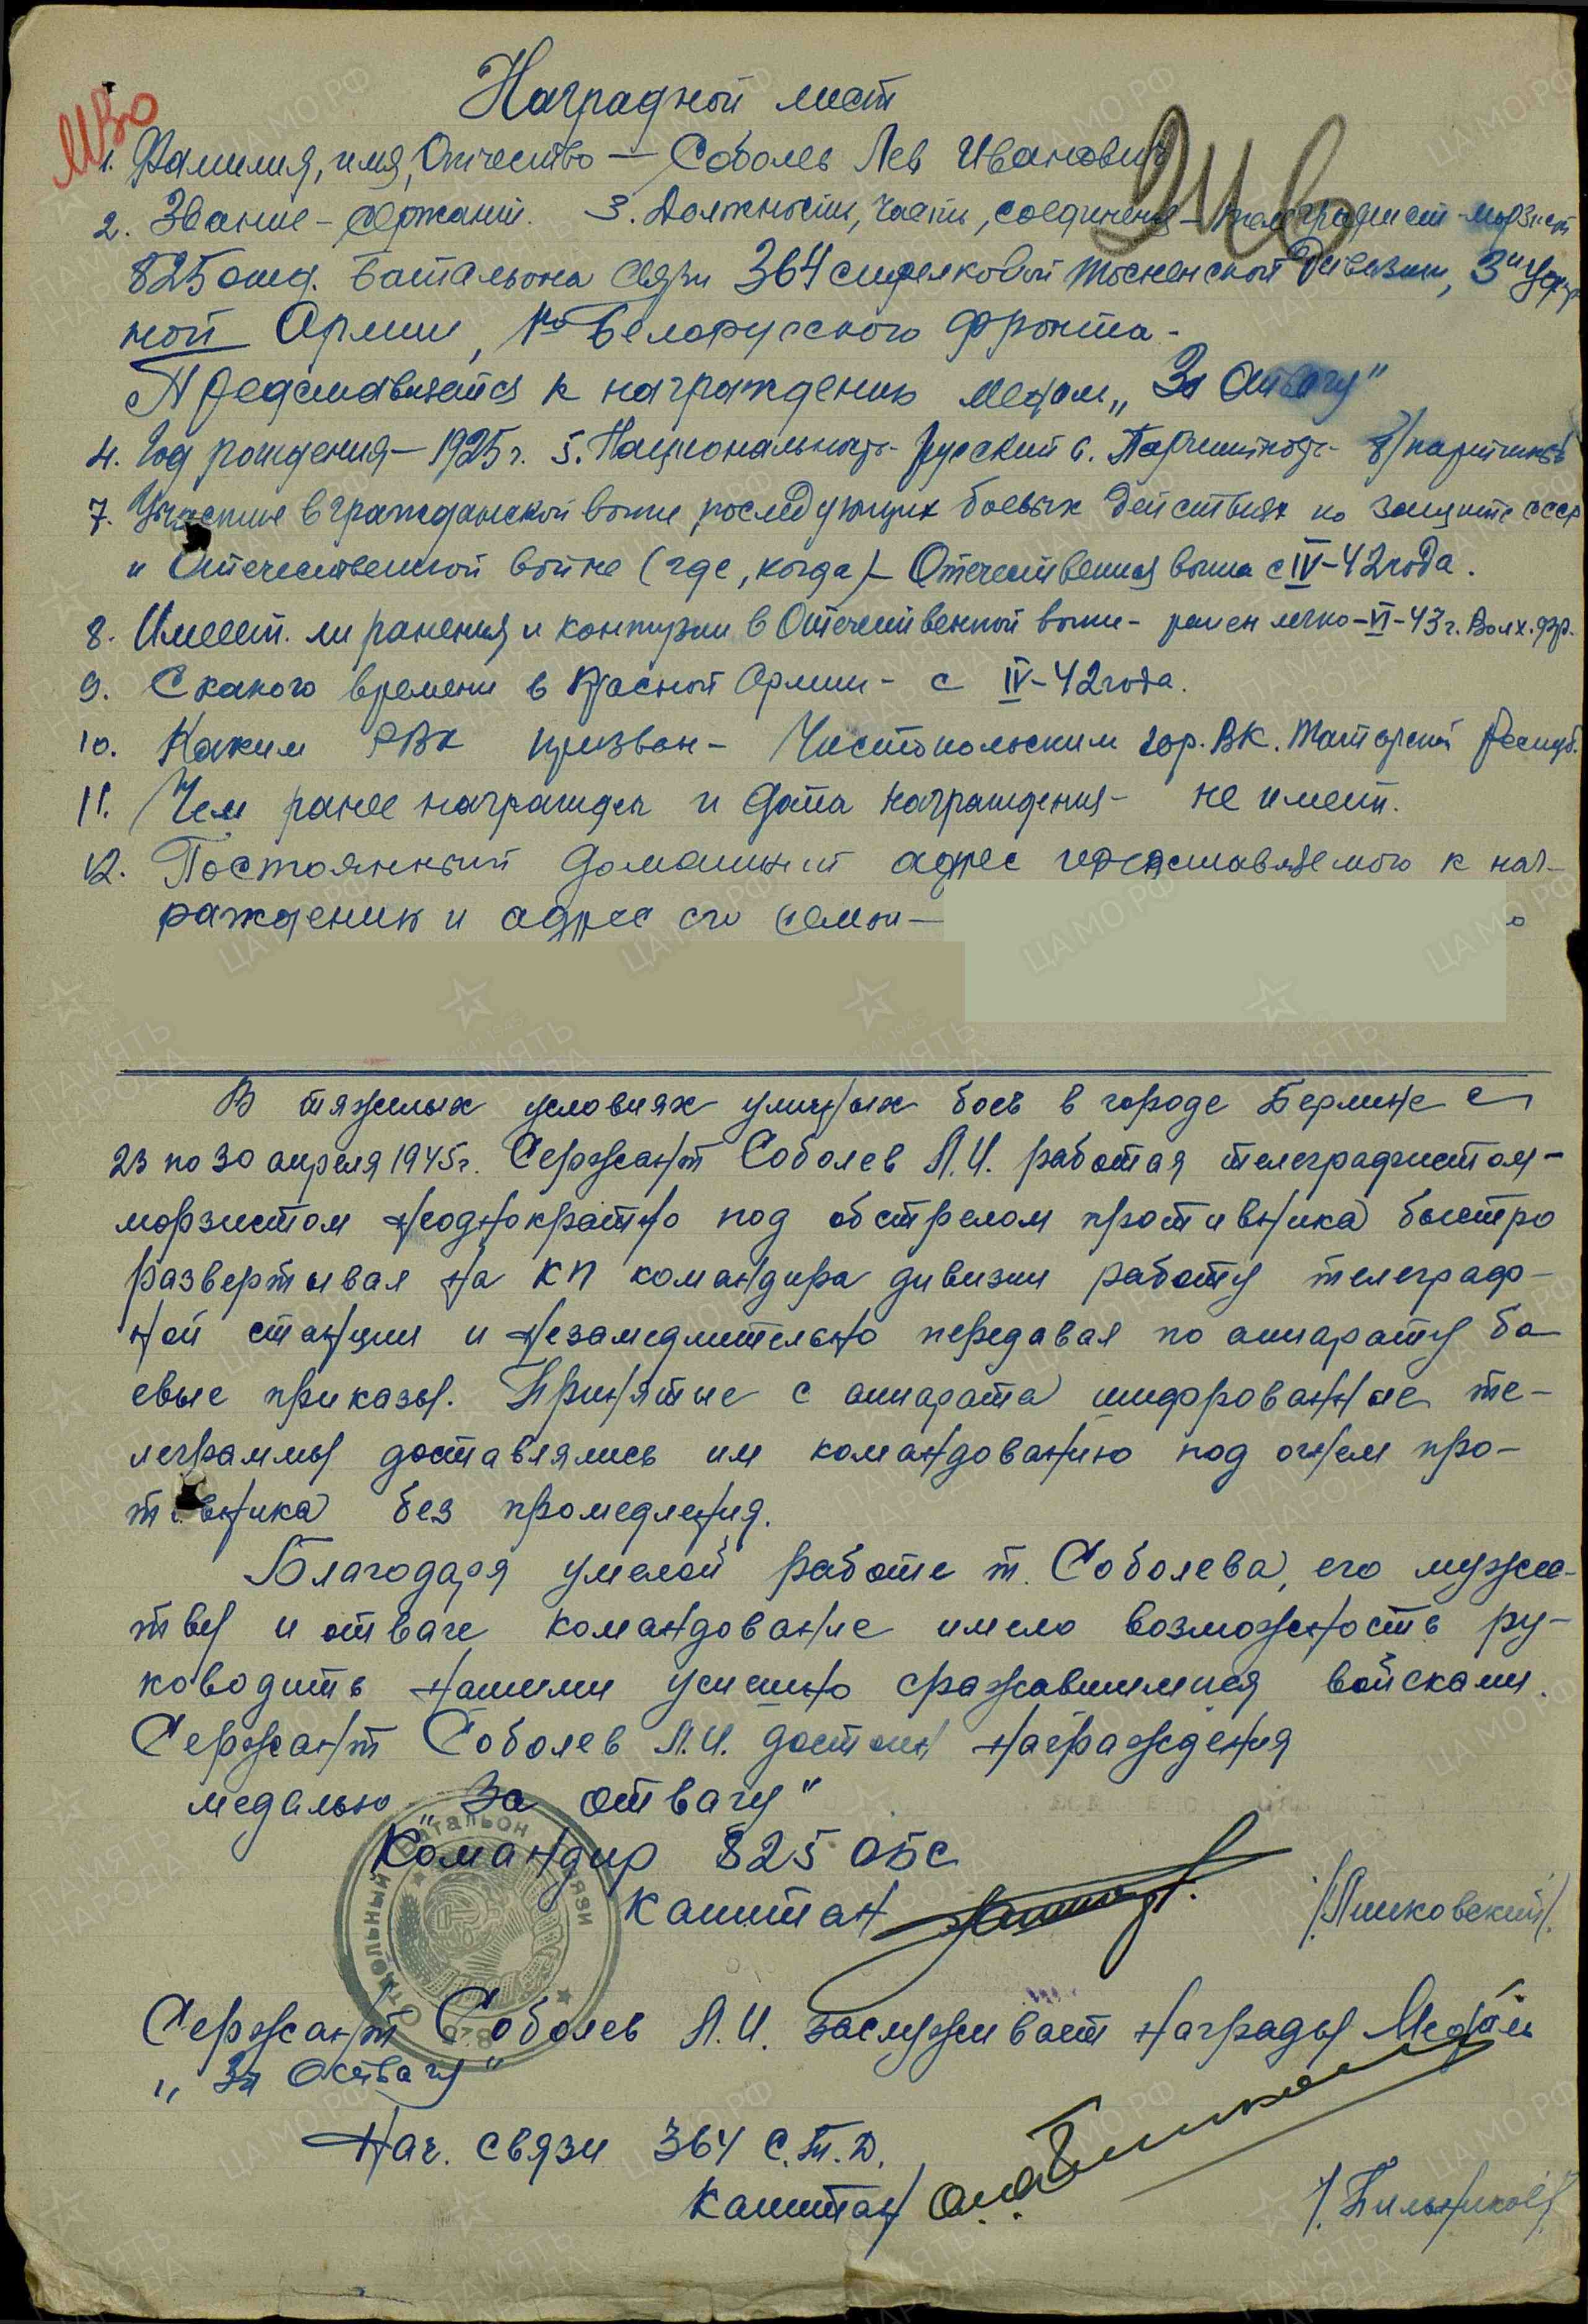 Наградной лист
1. Фамилия, имя, Отчество — Соболев Лев Иванович
2. Звание – Сержант. 3. Должность, часть, соединение – телеграфист-морзист
825 отд. батальона связи 364 стрелковой Тосненской Дивизии, 3й Удар
ной Армии, 1го Белорусского фронта -
Представляется к награждению медалью „За Отвагу"
4. Год рождения – 1925 г. 5. Национальность - русский 6. Партийность - б/партийный
7. Участие в гражданской войне, последующих боевых действиях по защите СССР
и Отечественной войне (где, когда) – Отечественная война с IV-42 года.
8. Имеет ли ранения и контузии в Отечественной войне - ранен легко - VI-43 г. Волх. фр.
9. С какого времени в Красной Армии - с IV-42 года.
10. Каким РВК призван - Чистопольским гор. ВК. Татарской Респуб.
11. Чем ранее награжден и дата награждения - не имеет.
12. Постоянный домашний адрес представляемого к наг-
раждению и адрес его семьи —
В тяжелых условиях уличных боев в городе Берлине с
23 по 30 апреля 1945 г. Сержант Соболев Л.И. работая телеграфистом-
морзистом неоднократно под обстрелом противника быстро
развертывая на КП командира дивизии работу телеграф-
ной станции и незамедлительно передавая по аппарату бо-
евые приказы. Принятые с аппарата шифрованные те-
леграммы доставлялись им командованию под огнем про-
тивника без промедления.
Благодаря умелой работе т. Соболева, его мужес-
тву и отваге командование имело возможность ру-
ководить нашими успешно сражавшимися войсками.
Сержант Соболев Л.И. достоин награждения
медалью „За отвагу"
Командир 825 ОБС
капитан /Яшковский/.
Отдельный батальон связи
825
Сержант Соболев Л.И. заслуживает награды Медаль
„За Отвагу"
Нач. связи 364 С.Т.Д.
Капитан /Пильников/